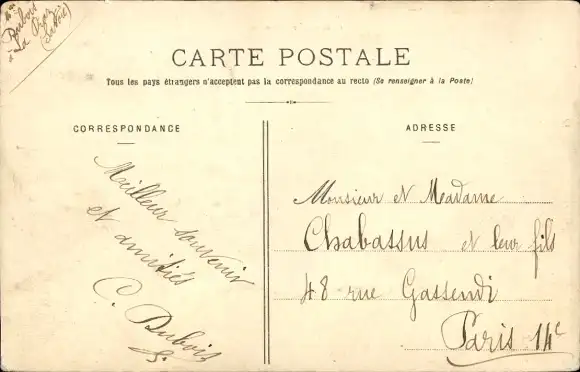 Mme
Dubois
à La Praz
(Savoie)
CARTE POSTALE
Tous les pays étrangers n'acceptent pas la correspondance au recto (Se renseigner à la Poste)
CORRESPONDANCE
Meilleur souvenir
et amitiés
C. Dubois
ADRESSE
Monsieur et Madame
Chabassus et leur fils
48 rue Gassendi
Paris 14e